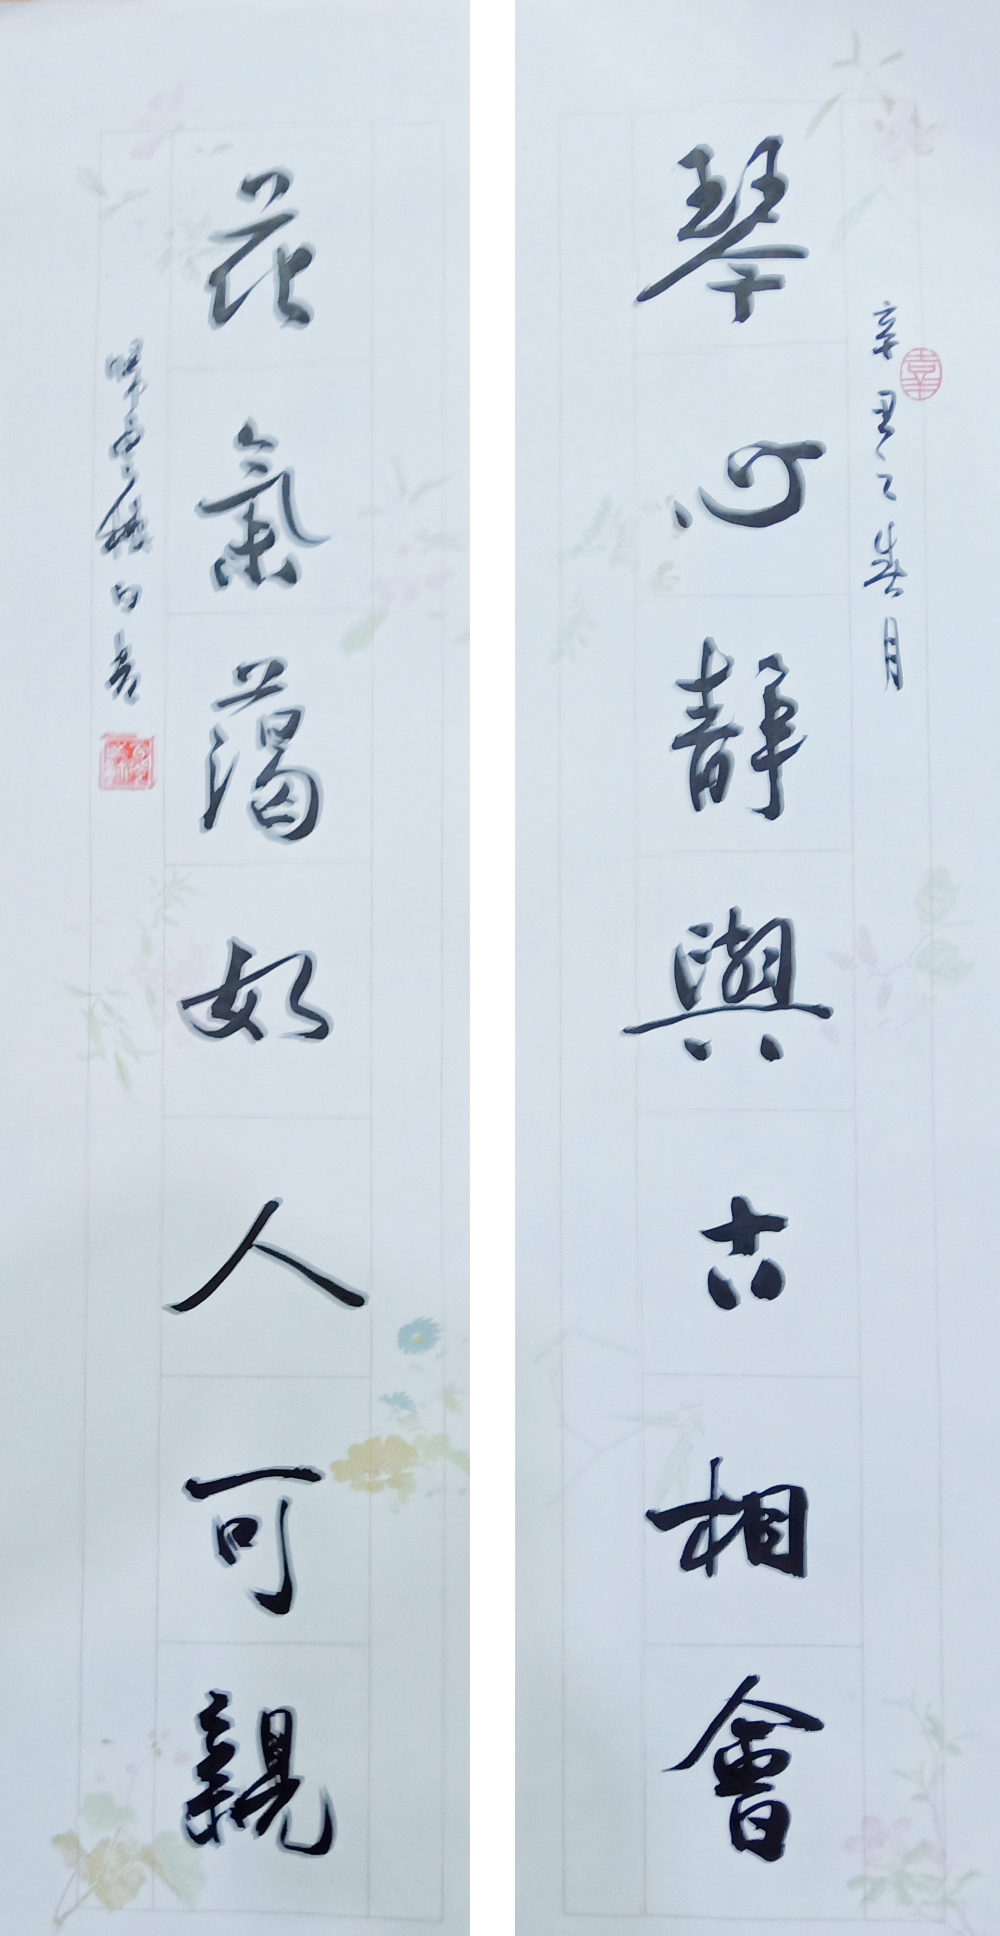 琴心靜與古相會
辛丑之春月
花氣藹如人可親